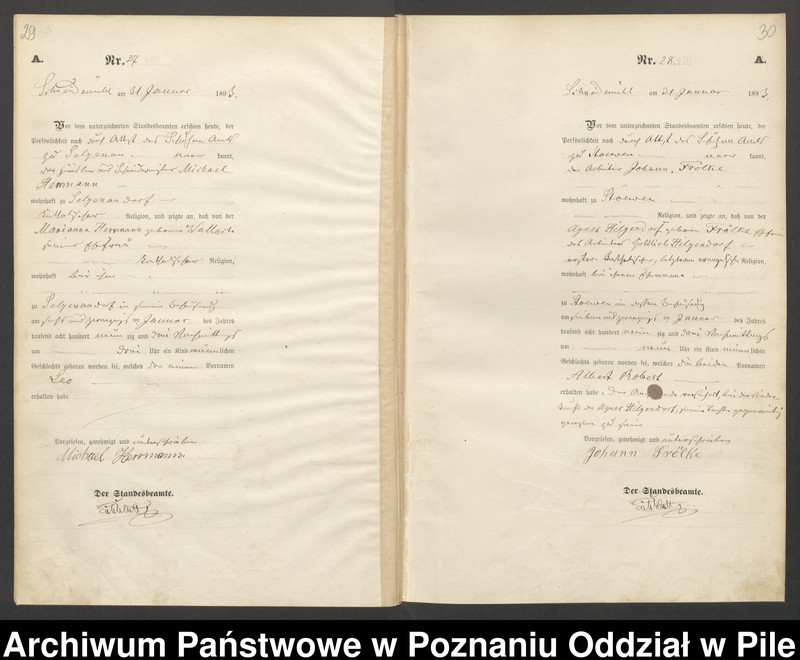 29
A.
Nr. 27
Schneidemühl am 31 Januar 1893.
Vor dem unterzeichneten Standesbeamten erschien heute, der
Persönlichkeit nach durch Attest des Schulzen Amts
zu Selgenau kannt,
Michael
Herrmann
wohnhaft zu Selgenau Dorf
katholischer Religion, und zeigte an, daß von der
Marianna Herrmann geborene
seiner Ehefrau
katholischer Religion,
wohnhaft bei ihm
zu Selgenau Dorf in seiner Behausung
am sechs und zwanzigsten Januar des Jahres
tausend acht hundert neun zig und drei Nachmittags
um drei Uhr ein Kind männlichen
Geschlechts geboren worden sei, welches den Vornamen
Leo
erhalten habe
Vorgelesen, genehmigt und unterschrieben
Michael Herrmann
Der Standesbeamte.
30
A.
Nr. 28.
Schneidemühl am 31 Januar 1893.
Vor dem unterzeichneten Standesbeamten erschien heute, der
Persönlichkeit nach durch Attest des Schulzen Amts
zu Stoewen kannt,
der Arbeiter Johann Frölke
wohnhaft zu Stöwen
Religion, und zeigte an, daß von der
Agnes Hilgendorf geboren Frölke Ehefrau
des Arbeiters Gottlieb Hilgendorf
katholischer, letzterer evangelischer Religion,
wohnhaft bei ihrem Ehemanne
zu Stoewen in dessen Behausung
am sieben und zwanzigsten Januar des Jahres
tausend acht hundert neun zig und drei Nachmittags
um neun Uhr ein Kind männlichen
Geschlechts geboren worden sei, welches die beiden Vornamen
Albert Robert
erhalten habe. Der versichert, bei der Nieder-
kunft der Agnes Hilgendorf, gegenwärtig
gewesen zu sein
Vorgelesen, genehmigt und unterschrieben
Johann Frölke
Der Standesbeamte.
Archiwum Państwowe w Poznaniu Oddział w Pile